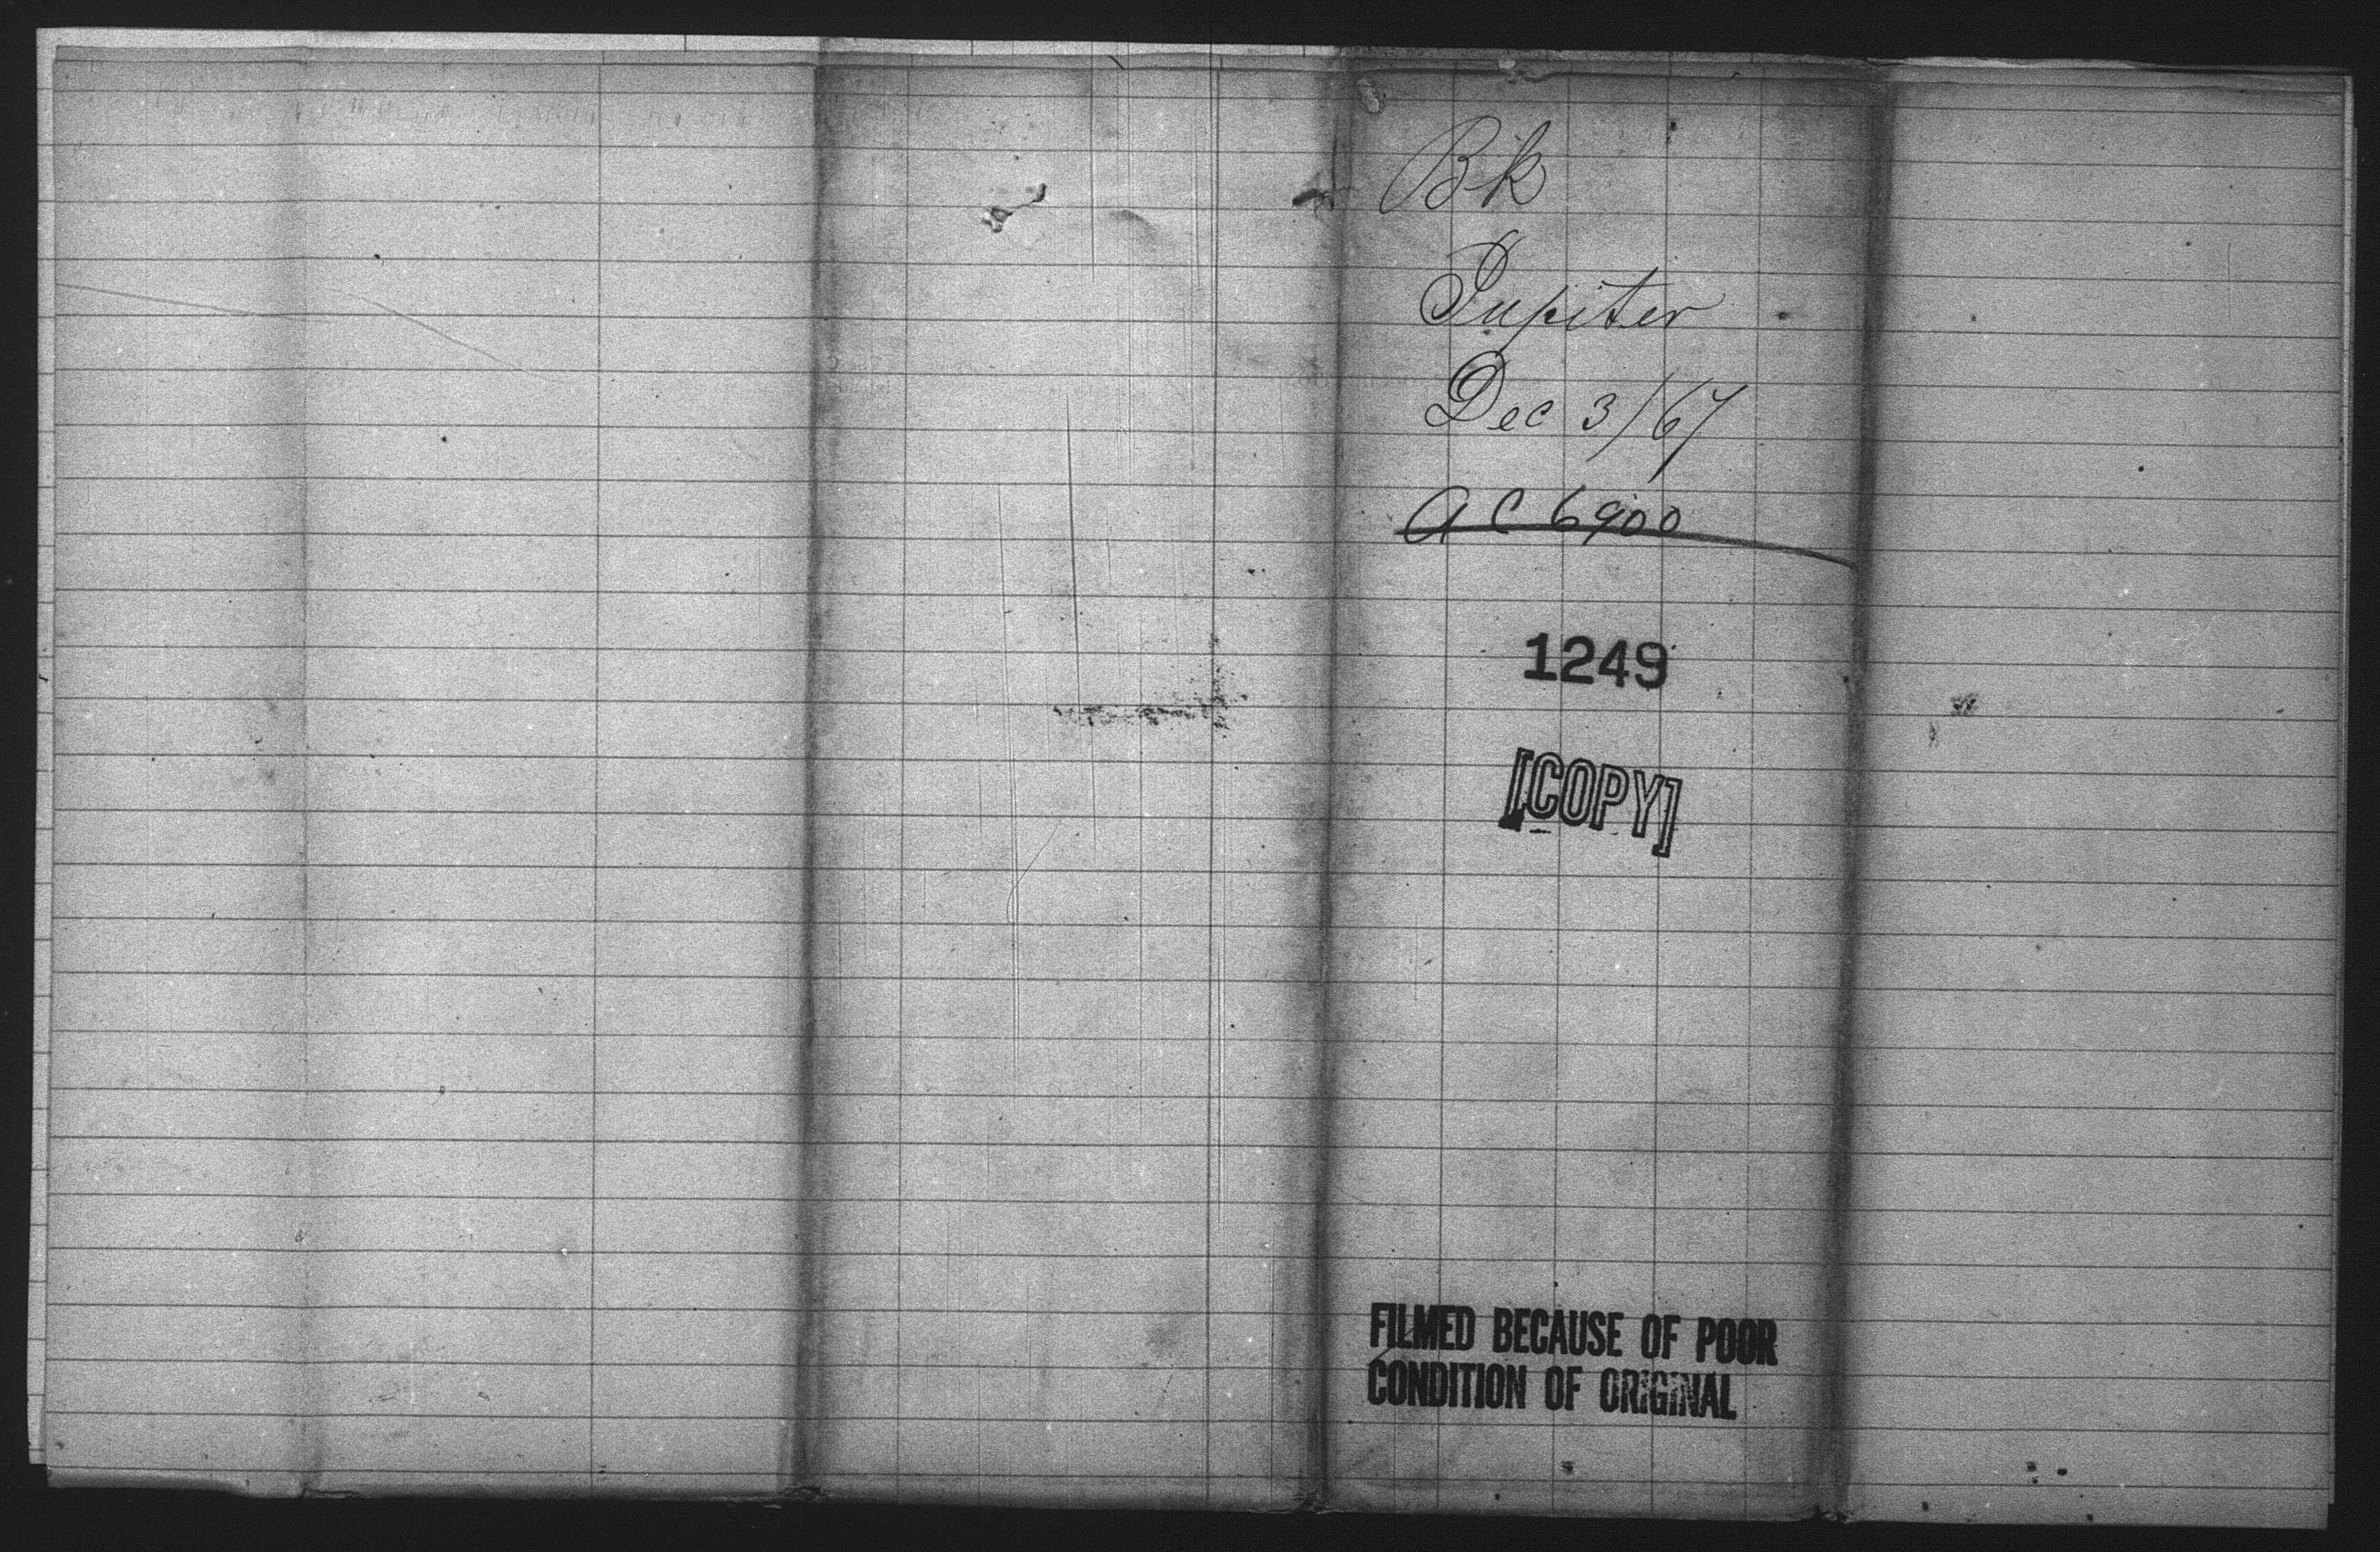 Bk
Jupiter
Dec 3/67
AC 6900
1249
[COPY]
FILMED BECAUSE OF POOR
CONDITION OF ORIGINAL